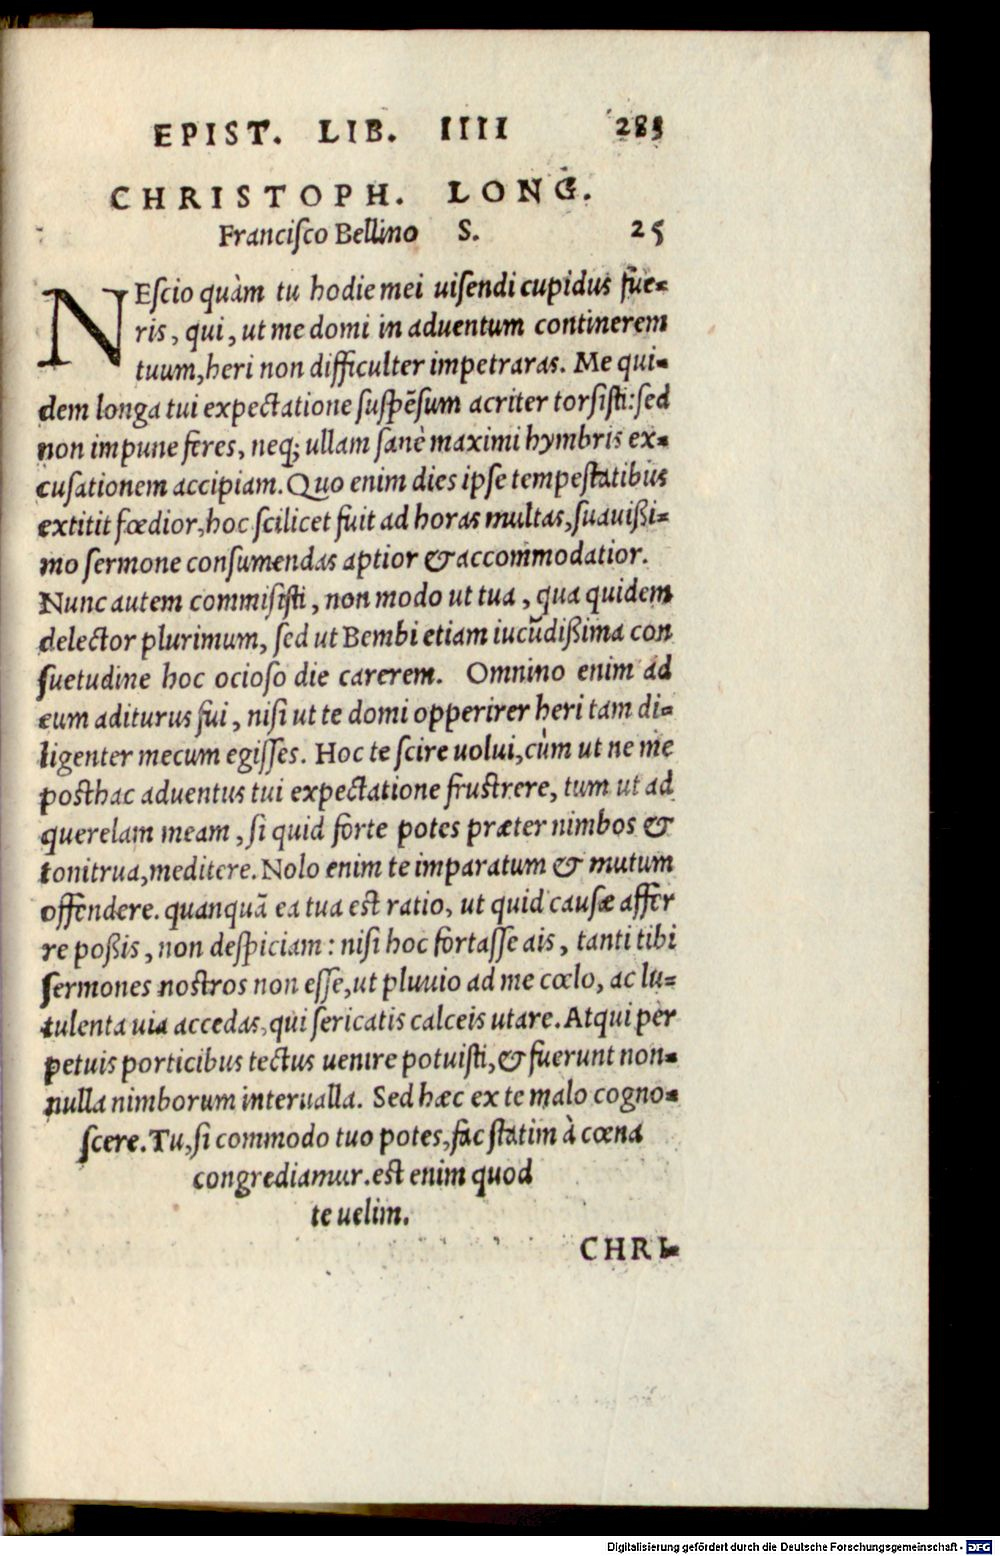 EPIST. LIB. IIII 285
CHRISTOPH. LONG.
Franciſco Bellino S. 25
NEſcio quàm tu hodie mei uiſendi cupidus fue-
ris, qui, ut me domi in aduentum continerem
tuum, heri non difficulter impetraras. Me qui-
dem longa tui expectatione ſuſpẽſum acriter torſiſti: ſed
non impune feres, neq; ullam ſanè maximi hymbris ex-
cuſationem accipiam. Quo enim dies ipſe tempeſtatibus
extitit fœdior, hoc ſcilicet fuit ad horas multas, ſuauißi-
mo ſermone conſumendas aptior & accommodatior.
Nunc autem commiſiſti, non modo ut tua, qua quidem
delector plurimum, ſed ut Bembi etiam iucũdißima con
ſuetudine hoc ocioſo die carerem. Omnino enim ad
eum aditurus fui, niſi ut te domi opperirer heri tam di-
ligenter mecum egiſſes. Hoc te ſcire uolui, cùm ut ne me
posthac aduentus tui expectatione frustrere, tum ut ad
querelam meam, ſi quid forte potes præter nimbos &
tonitrua, meditere. Nolo enim te imparatum & mutum
offendere. quanquã ea tua est ratio, ut quid cauſæ affer
re poßis, non deſpiciam: niſi hoc fortaſſe ais, tanti tibi
ſermones nostros non eſſe, ut pluuio ad me cœlo, ac lu-
tulenta uia accedas, qui ſericatis calceis utare. Atqui per
petuis porticibus tectus uenire potuiſti, & fuerunt non-
nulla nimborum interualla. Sed hæc ex te malo cogno-
ſcere. Tu, ſi commodo tuo potes, fac ſtatim à cœna
congrediamur. est enim quod
te uelim.
CHRI-
Digitalisierung gefördert durch die Deutsche Forschungsgemeinschaft - DFG